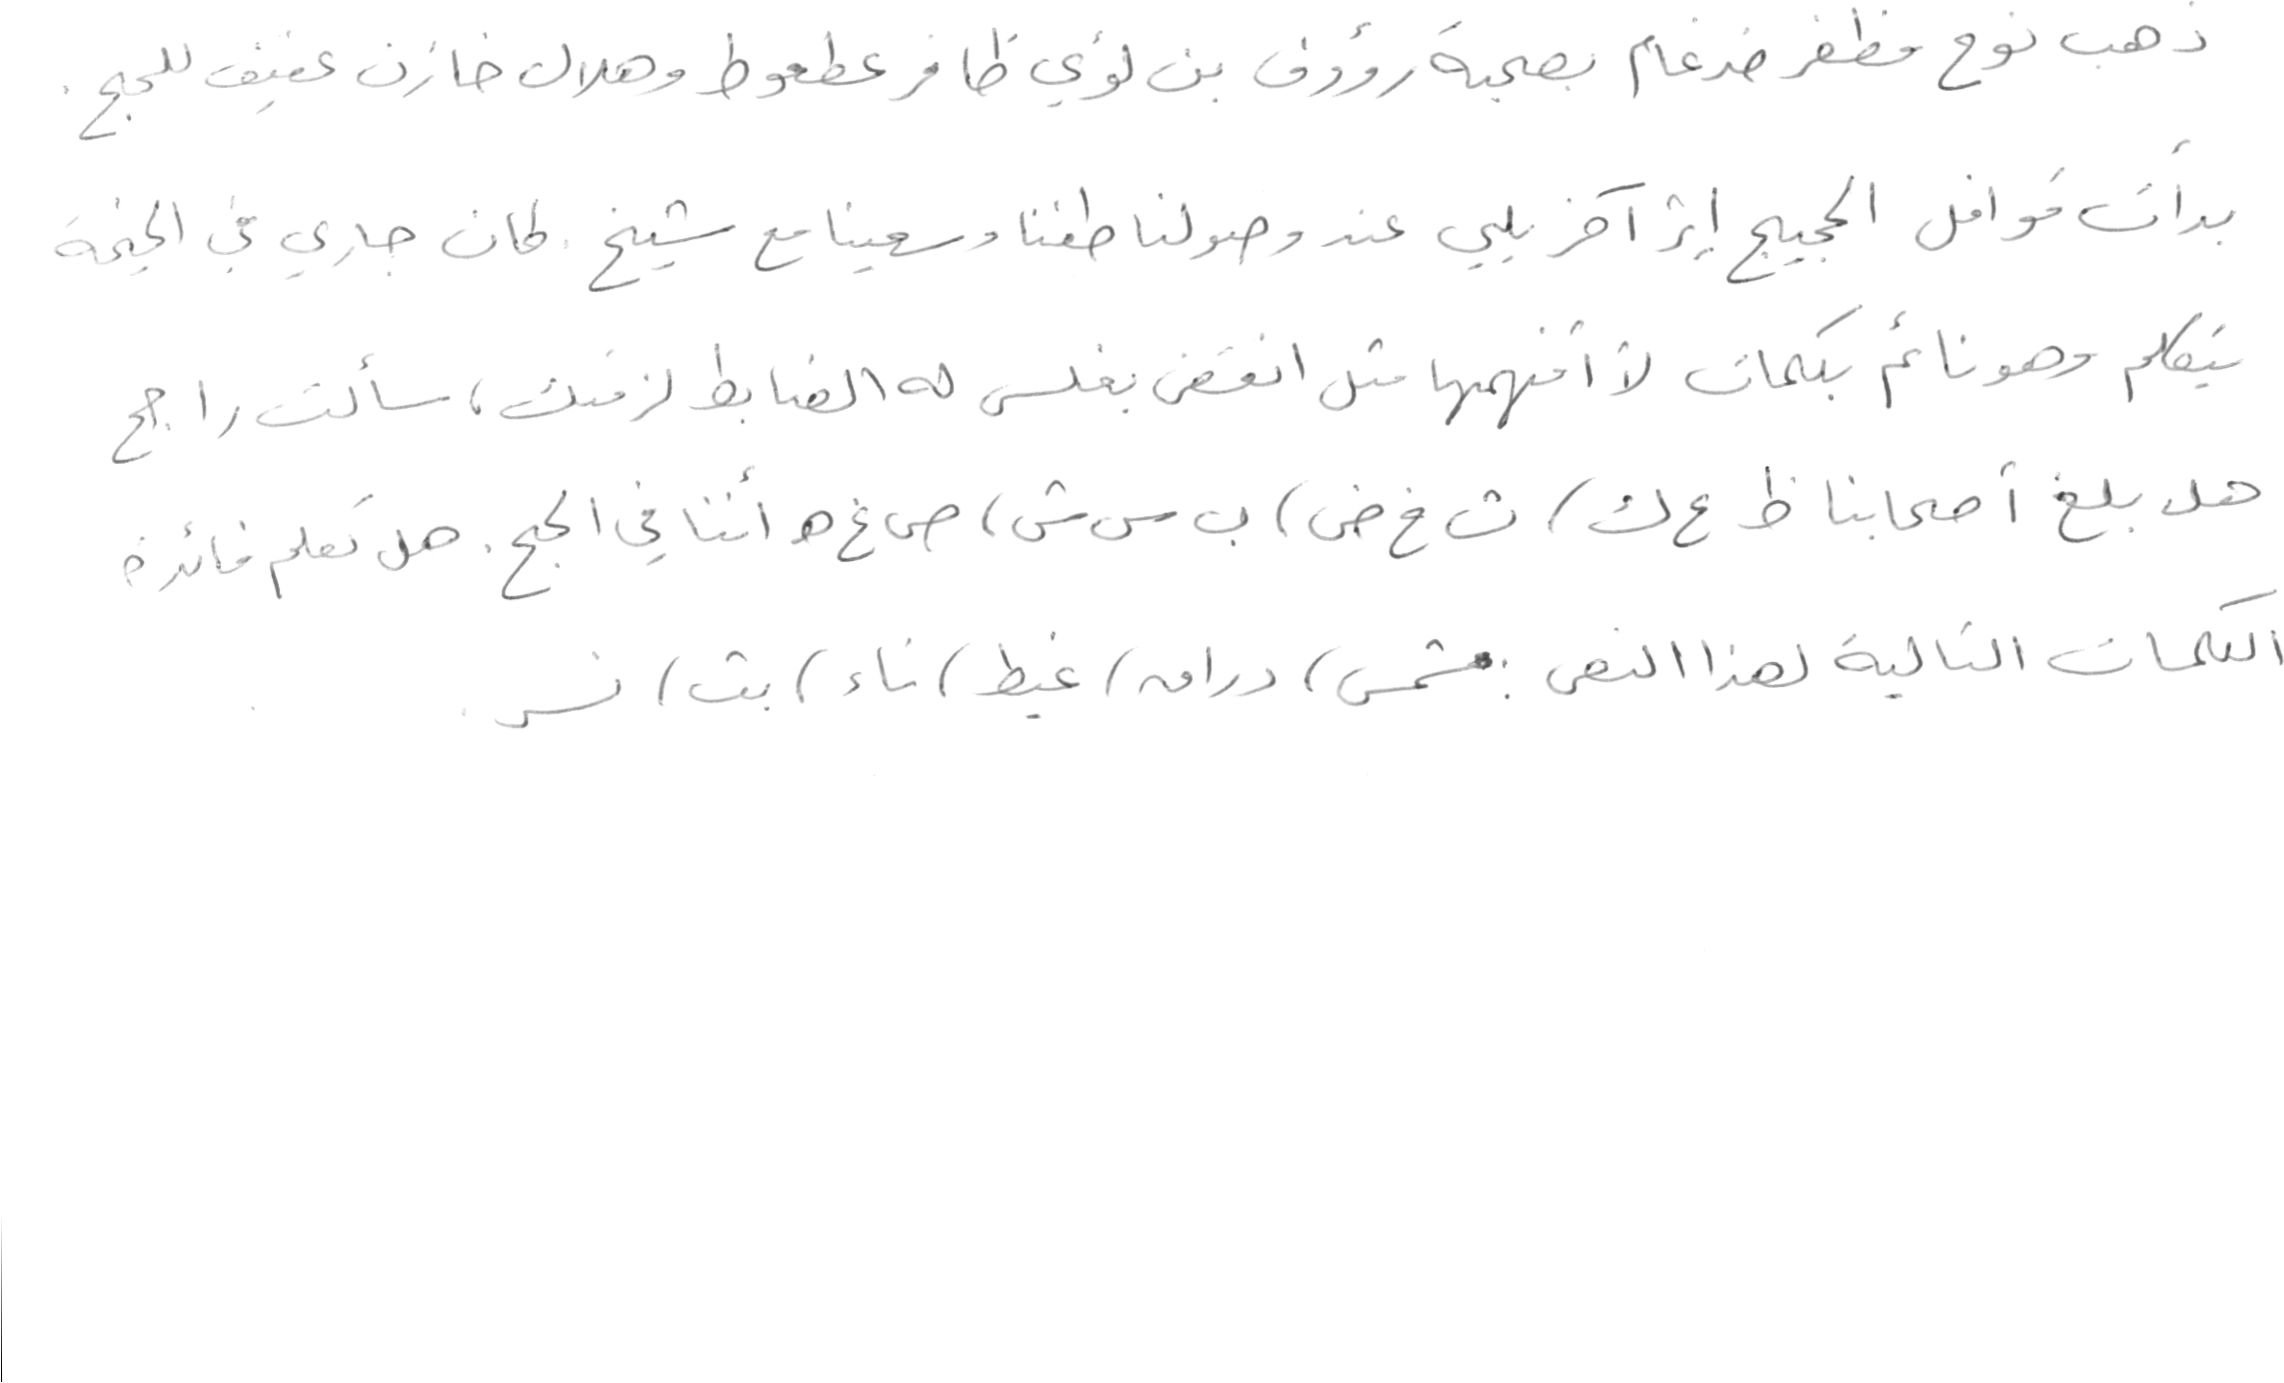 ذهب نوح مظفر ضرغام بصحبة رؤوف بن لؤي ظافر عطعوط وهلال خازن عفيف للحج.
بدأت قوافل الحجيج إثر آخر يلبي عند وصولنا طفنا وسعينا مع شيخ. كان جاري في الخيمة
يتكلم وهو نائم بكلمات لا أفهمها مثل انقض بغلس له الضابط لزمتك، سألت راجح
هل بلغ أصحابنا ظ ع ك، ث خ ض، ب س ش، ص غ ه أننا في الحج. هل تعلم فائدة
الكلمات التالية لهذا النص: مشمس، دراق، غيظ، ثاء، بث، نسر.